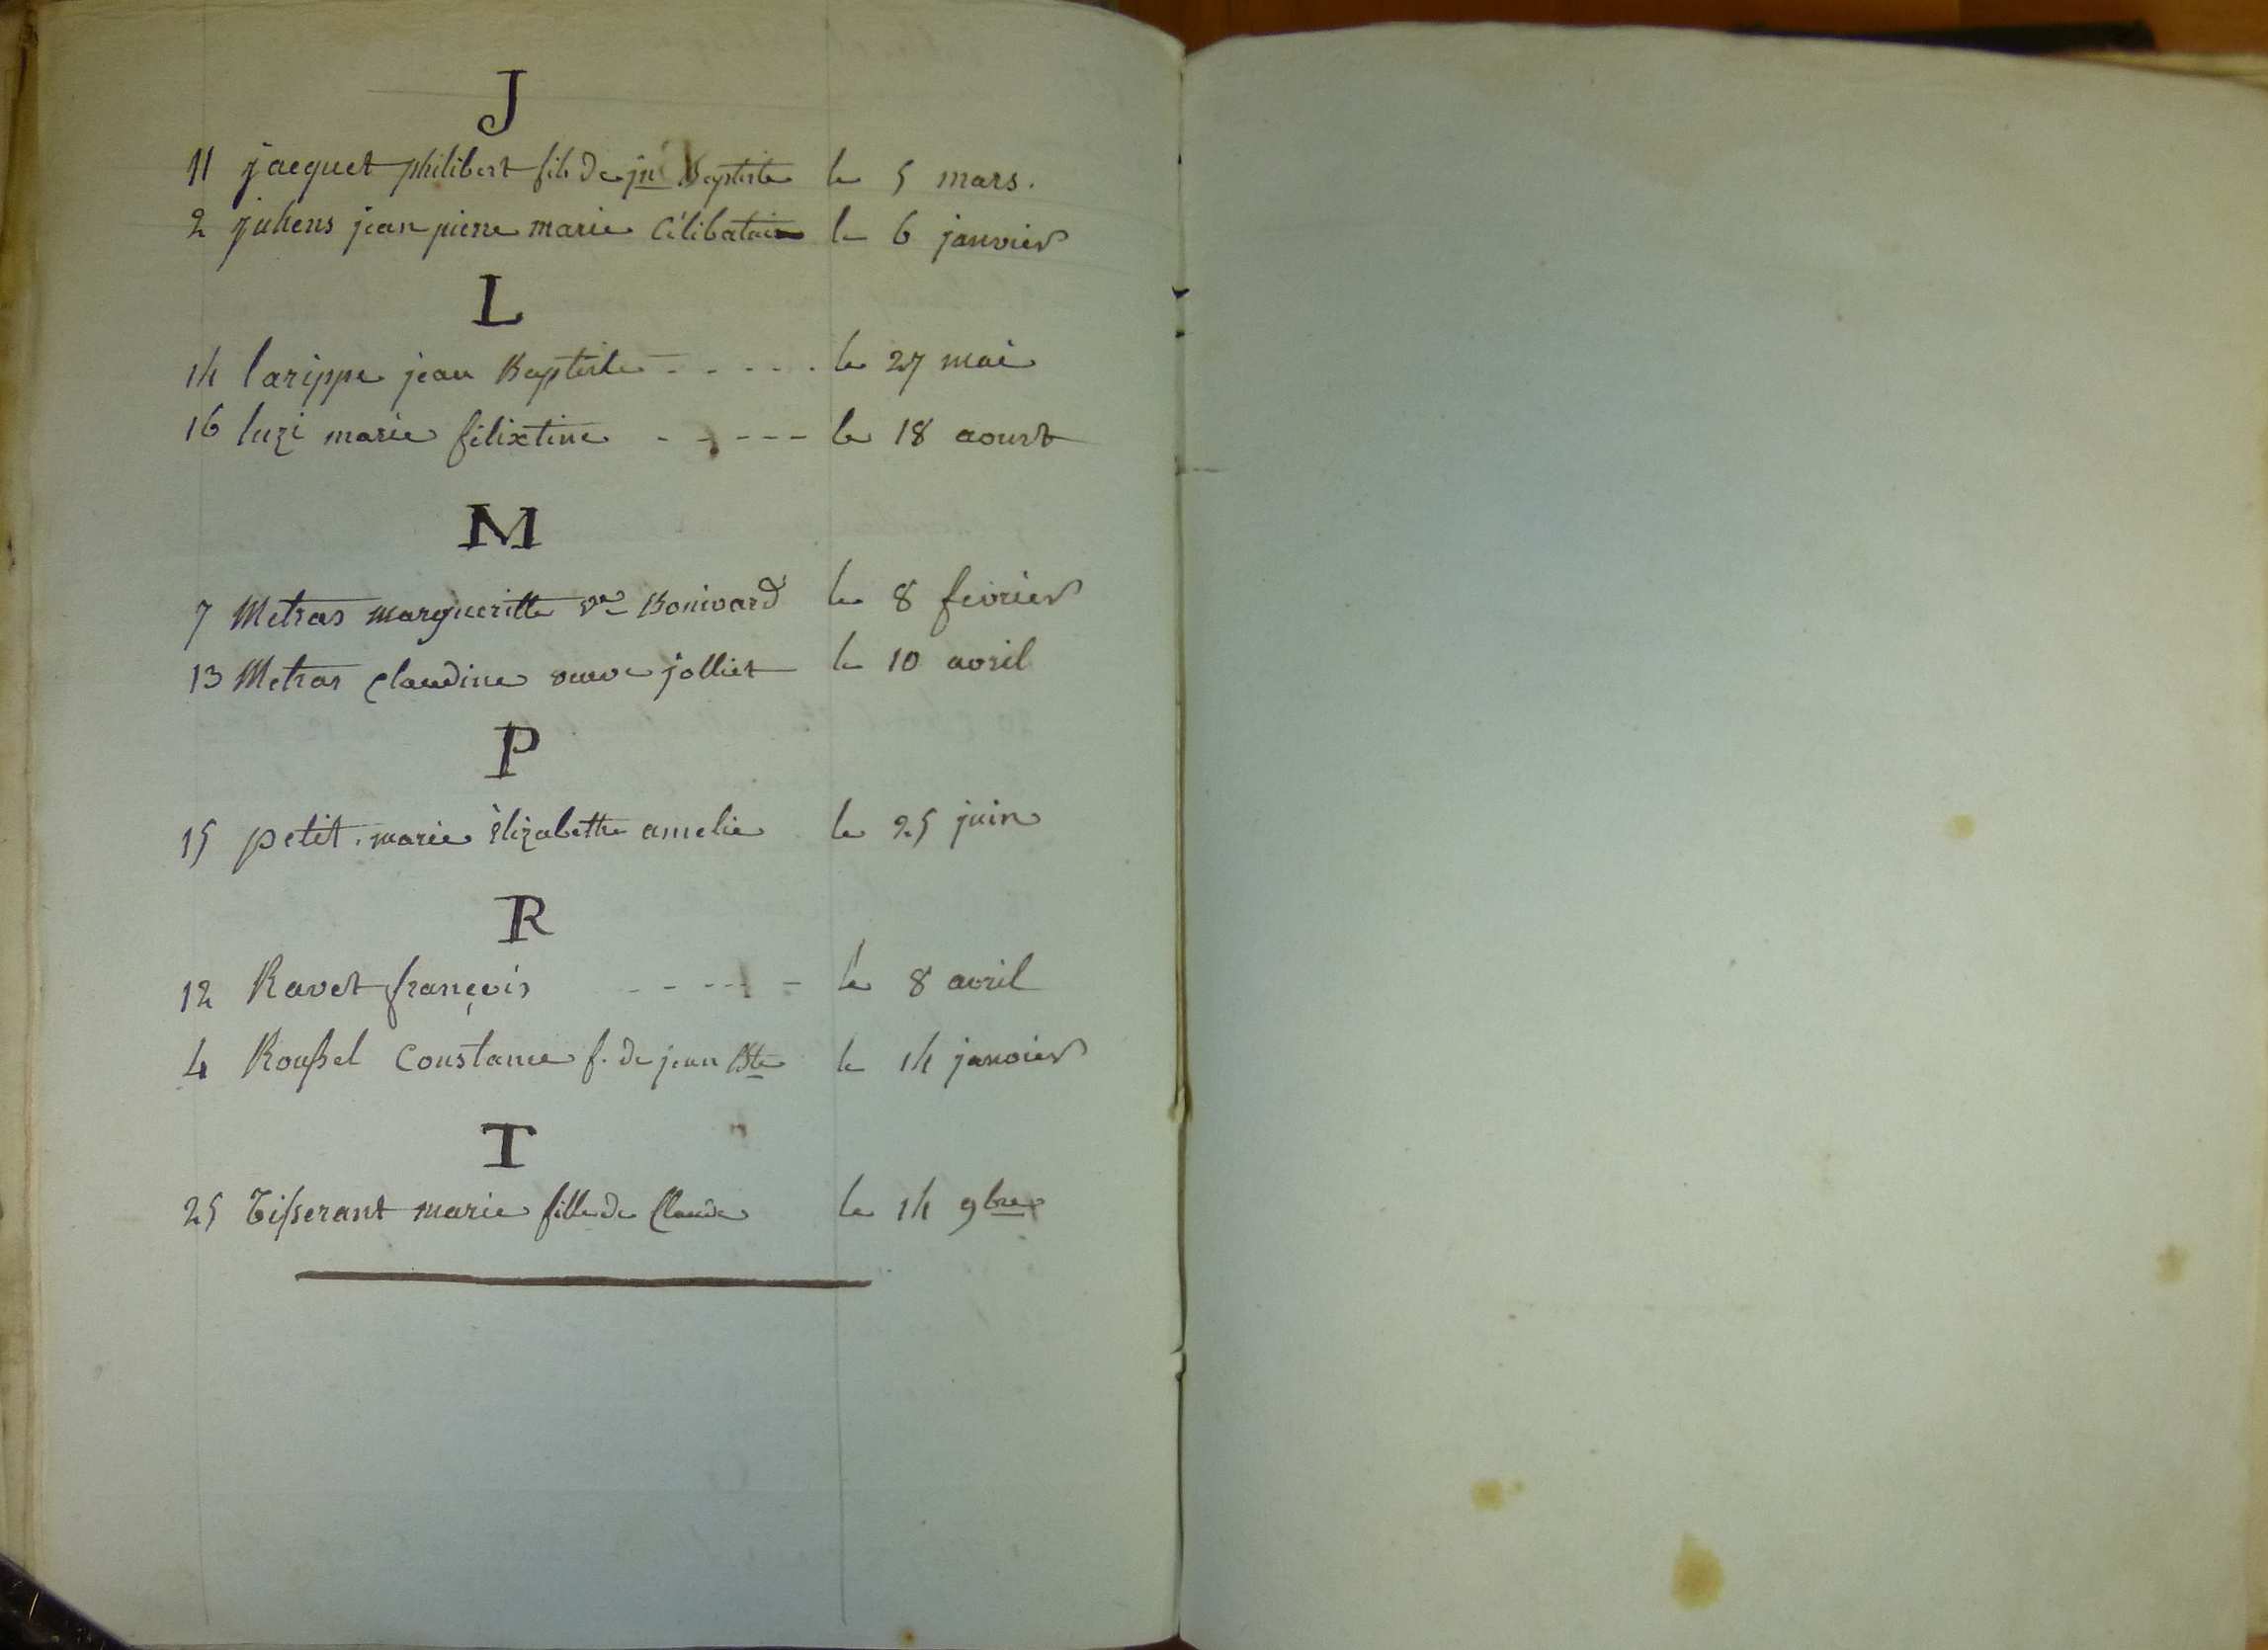 J
11 jacquet philibert fils de jn Baptiste le 5 mars.
2 juhens jean pierre marie Célibataire le 6 janvier
L
14 larippe jean Baptiste - - - - - . le 27 mai
16 luzi marie félixtine - - - - - le 18 aoust
M
7 Metras margueritte ve Bonivard le 8 fevrier
13 Metras claudine veuve jolliet le 10 avril
P
15 petit. marie Élizabethe amelie le 25 juin
R
12 Ravet françois - - - - - le 8 avril
4 Roussel Constance f. de jean Bte le 14 janvier
T
25 Tisserant marie fille de Claude le 14 9bre